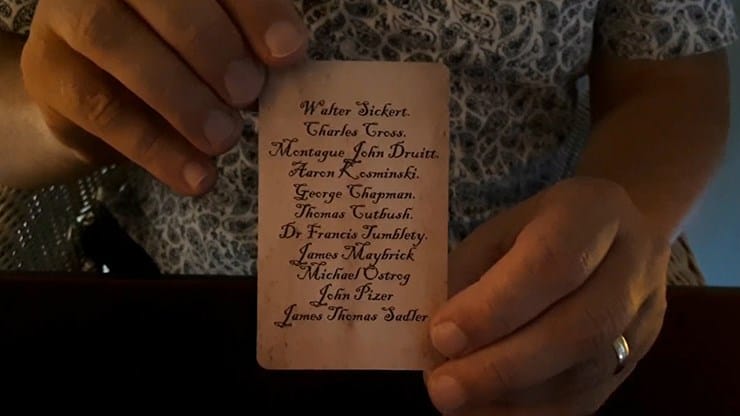 Walter Sickert.
Charles Cross.
Montague John Druitt.
Aaron Kosminski.
George Chapman.
Thomas Cutbush.
Dr Francis Tumblety.
James Maybrick
Michael Ostrog
John Pizer
James Thomas Sadler